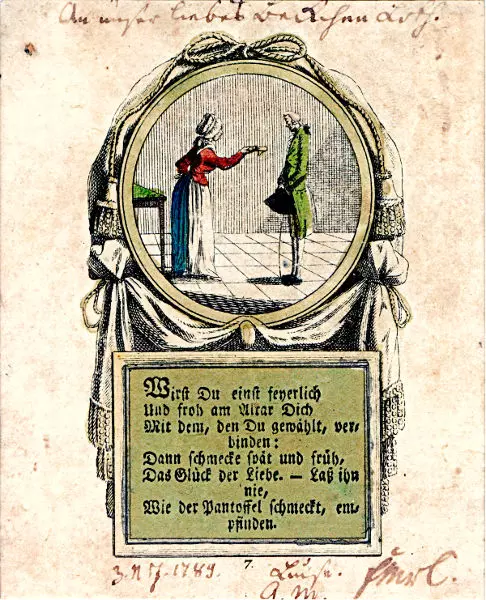 An unser liebes
Wirst Du einst feyerlich
Und froh am Altar Dich
Mit dem, den Du gewählt, ver-
binden:
Dann schmecke spät und früh,
Das Glück der Liebe. — Laß ihn
nie,
Wie der Pantoffel schmeckt, em-
pfinden.
7.
1789. Luise.